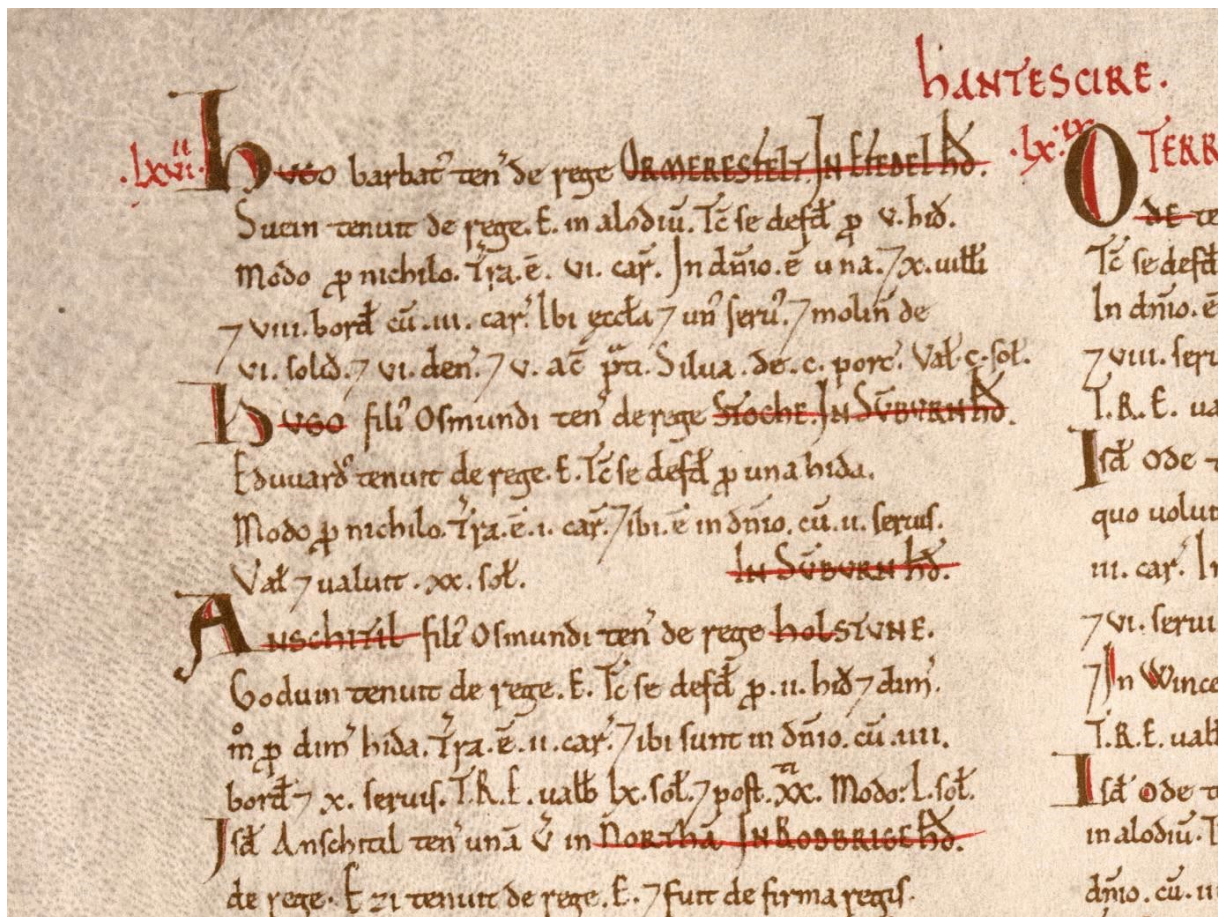 HANTESCIRE.
.LXVII. HUGO barbat' ten' de rege ORMERESTELT. IN EFEDEL HD'.
Suein tenuit de rege. E. in alodiū. Tc̄ se defd' ꝑ v. hid'.
Modo ꝑ nichilo. Tr̄a. ē. vi. car'. In dn̄io. ē una. ⁊ x. uilli
⁊ viii. bord' cū .iii. car'. Ibi ęccła ⁊ un' seru'. ⁊ molin' de
vi. solid'. ⁊ vi. den'. ⁊ v. ac̄ p̄ti. Silua .de .c. porc'. Val' .c. sol'.
HUGO fili' Osmundi ten' de rege STOCHE. IN SŪBURN HD'.
Eduuard' tenuit de rege. E. Tc̄ se defd' ꝑ una hida.
Modo ꝑ nichilo. Tr̄a. ē. i. car'. ⁊ ibi. ē in dn̄io. cū .ii. seruis.
Val' ⁊ ualuit .xx. sol'. IN SŪBURN HD'.
ANSCHITIL fili' Osmundi ten' de rege HOLSTUNE.
Goduin tenuit de rege. E. Tc̄ se defd' ꝑ .ii. hid' ⁊ dim'.
m̊ ꝑ dim' hida. Tr̄a. ē. ii. car'. ⁊ ibi sunt in dn̄io. cū .iiii.
bord' ⁊ x. seruis. T.R.E. ualb' lx. sol'. ⁊ post. xx. Modo: L. sol'.
Isd' Anschitil ten' unā v' in NORTHĀ. IN RODBRIGE HD'.
de rege. Ezi tenuit de rege. E. ⁊ fuit de firma regis.
.LX.IX. TERR
ODE te
Tc̄ se defd'
In dn̄io. ē
⁊ viii. seru
T.R.E. ua
Isd' Ode t
quo uolui
iii. car'. In
⁊ vi. serui
⁊ In Wince
T.R.E. ualb'
Isd' Ode t
in alodiū. T
dn̄io. cū. ii